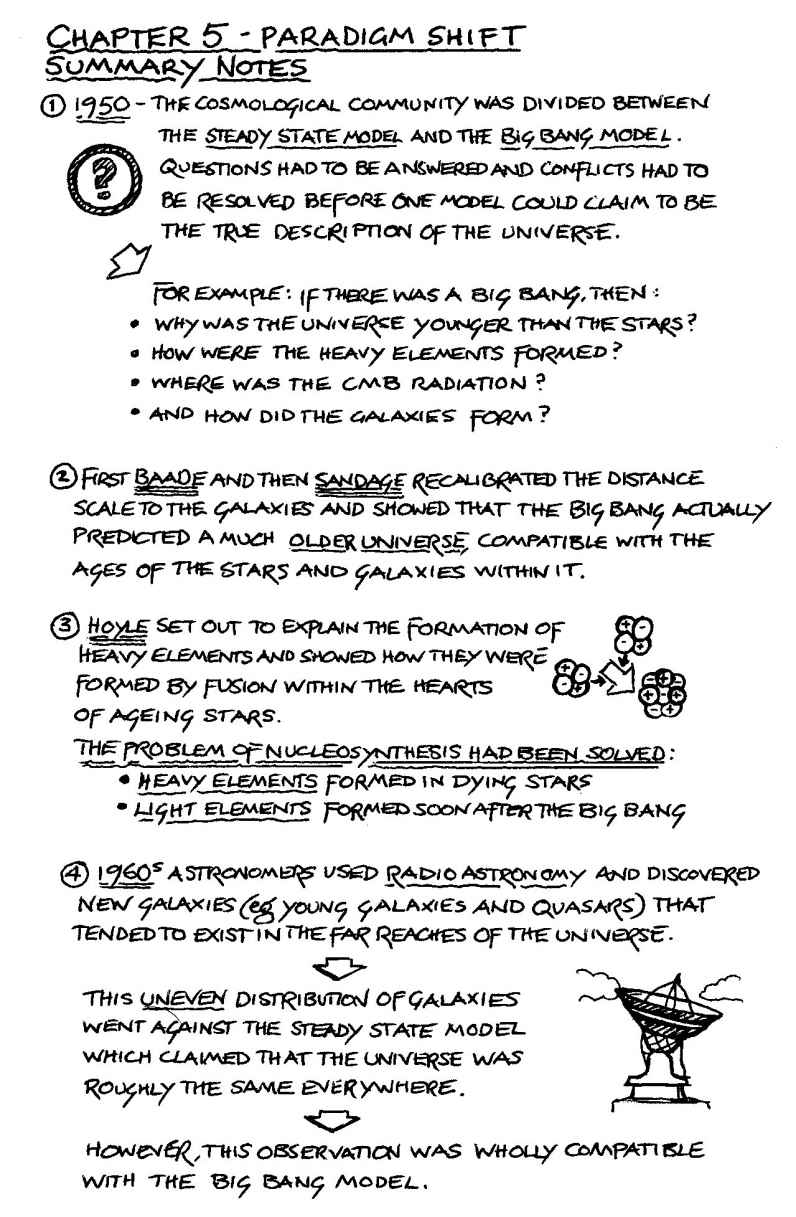 CHAPTER 5 - PARADIGM SHIFT
SUMMARY NOTES
① 1950 - THE COSMOLOGICAL COMMUNITY WAS DIVIDED BETWEEN
THE STEADY STATE MODEL AND THE BIG BANG MODEL.
QUESTIONS HAD TO BE ANSWERED AND CONFLICTS HAD TO
BE RESOLVED BEFORE ONE MODEL COULD CLAIM TO BE
THE TRUE DESCRIPTION OF THE UNIVERSE.
?
FOR EXAMPLE: IF THERE WAS A BIG BANG, THEN:
• WHY WAS THE UNIVERSE YOUNGER THAN THE STARS?
• HOW WERE THE HEAVY ELEMENTS FORMED?
• WHERE WAS THE CMB RADIATION?
• AND HOW DID THE GALAXIES FORM?
② FIRST BAADE AND THEN SANDAGE RECALIBRATED THE DISTANCE
SCALE TO THE GALAXIES AND SHOWED THAT THE BIG BANG ACTUALLY
PREDICTED A MUCH OLDER UNIVERSE, COMPATIBLE WITH THE
AGES OF THE STARS AND GALAXIES WITHIN IT.
③ HOYLE SET OUT TO EXPLAIN THE FORMATION OF
HEAVY ELEMENTS AND SHOWED HOW THEY WERE
FORMED BY FUSION WITHIN THE HEARTS
OF AGEING STARS.
THE PROBLEM OF NUCLEOSYNTHESIS HAD BEEN SOLVED:
• HEAVY ELEMENTS FORMED IN DYING STARS
• LIGHT ELEMENTS FORMED SOON AFTER THE BIG BANG
④ 1960s ASTRONOMERS USED RADIO ASTRONOMY AND DISCOVERED
NEW GALAXIES (eg YOUNG GALAXIES AND QUASARS) THAT
TENDED TO EXIST IN THE FAR REACHES OF THE UNIVERSE.
THIS UNEVEN DISTRIBUTION OF GALAXIES
WENT AGAINST THE STEADY STATE MODEL
WHICH CLAIMED THAT THE UNIVERSE WAS
ROUGHLY THE SAME EVERYWHERE.
HOWEVER, THIS OBSERVATION WAS WHOLLY COMPATIBLE
WITH THE BIG BANG MODEL.